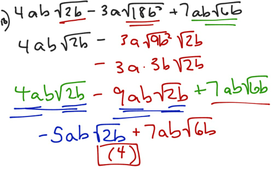 13) 4ab√2b - 3a√18b³ + 7ab√6b
4ab√2b - 3a√9b²√2b
- 3a·3b√2b
4ab√2b - 9ab√2b + 7ab√6b
-5ab√2b + 7ab√6b
(4)